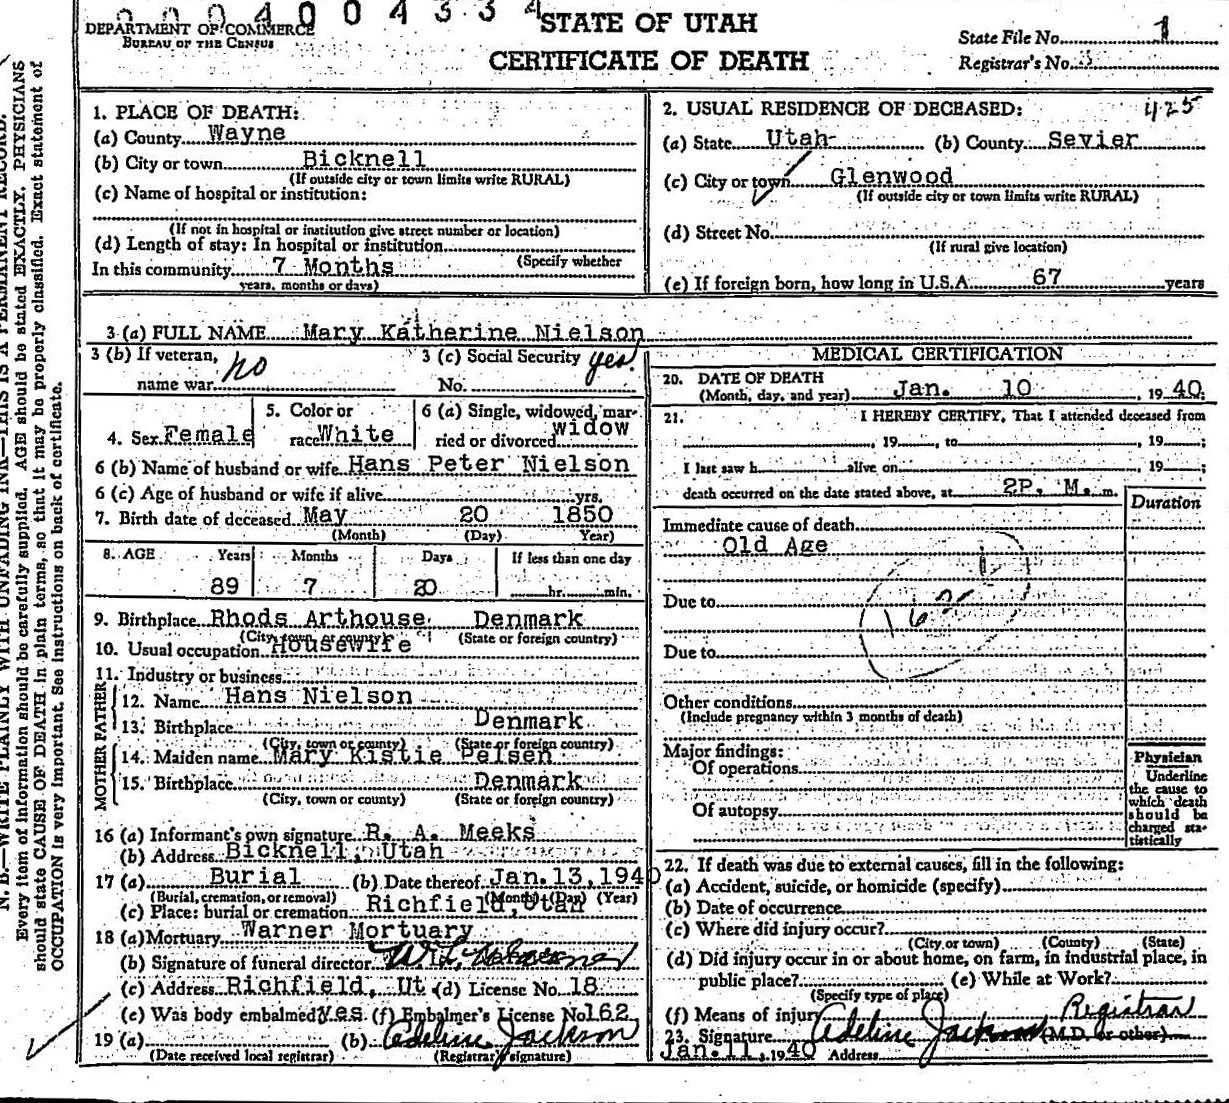 0004004334
DEPARTMENT OF COMMERCE
BUREAU OF THE CENSUS
STATE OF UTAH
CERTIFICATE OF DEATH
State File No. 1
Registrar's No.
N. B.—WRITE PLAINLY WITH UNFADING INK—THIS IS A PERMANENT RECORD.
Every item of information should be carefully supplied. AGE should be stated EXACTLY. PHYSICIANS
should state CAUSE OF DEATH in plain terms, so that it may be properly classified. Exact statement of
OCCUPATION is very important. See instructions on back of certificate.
1. PLACE OF DEATH:
(a) County Wayne
(b) City or town Bicknell
(If outside city or town limits write RURAL)
(c) Name of hospital or institution:
(If not in hospital or institution give street number or location)
(d) Length of stay: In hospital or institution
(Specify whether
In this community 7 Months
years, months or days)
2. USUAL RESIDENCE OF DECEASED: 425
(a) State Utah (b) County Sevier
(c) City or town Glenwood
(If outside city or town limits write RURAL)
(d) Street No.
(If rural give location)
(e) If foreign born, how long in U.S.A. 67 years
3 (a) FULL NAME Mary Katherine Nielson
3 (b) If veteran, no
name war
3 (c) Social Security yes
No.
4. Sex Female
5. Color or
race White
6 (a) Single, widowed, mar-
ried or divorced widow
6 (b) Name of husband or wife Hans Peter Nielson
6 (c) Age of husband or wife if alive yrs.
7. Birth date of deceased May 20 1850
(Month) (Day) Year)
8. AGE Years Months Days If less than one day
89 7 20 hr. min.
9. Birthplace Rhods Arthouse Denmark
(City, town or county) (State or foreign country)
10. Usual occupation Housewife
11. Industry or business
FATHER
12. Name Hans Nielson
13. Birthplace Denmark
(City, town or county) (State or foreign country)
MOTHER
14. Maiden name Mary Kistie Pelsen
15. Birthplace Denmark
(City, town or county) (State or foreign country)
16 (a) Informant's own signature R. A. Meeks
(b) Address Bicknell, Utah
17 (a) Burial (b) Date thereof Jan. 13, 1940
(Burial, cremation, or removal) (Month) (Day) (Year)
(c) Place: burial or cremation Richfield, Utah
18 (a) Mortuary Warner Mortuary
(b) Signature of funeral director
(c) Address Richfield, Ut (d) License No. 18
(e) Was body embalmed yes (f) Embalmer's License No 162
19 (a) (b) Adeline Jackson
(Date received local registrar) (Registrar signature)
MEDICAL CERTIFICATION
20. DATE OF DEATH
(Month, day, and year) Jan. 10, 1940
21. I HEREBY CERTIFY, That I attended deceased from
, 19 , to , 19 ;
I last saw h alive on , 19 ;
death occurred on the date stated above, at 2P. M. m.
Duration
Immediate cause of death
Old Age
Due to
Due to
Other conditions
(Include pregnancy within 3 months of death)
Major findings:
Of operations
Of autopsy
Physician
Underline
the cause to
which death
should be
charged sta-
tistically
22. If death was due to external causes, fill in the following:
(a) Accident, suicide, or homicide (specify)
(b) Date of occurrence
(c) Where did injury occur?
(City or town) (County) (State)
(d) Did injury occur in or about home, on farm, in industrial place, in
public place? (e) While at Work?
(Specify type of place)
(f) Means of injury Registrar
23. Signature Adeline Jackson (M.D. or other)
Jan. 11, 1940 Address